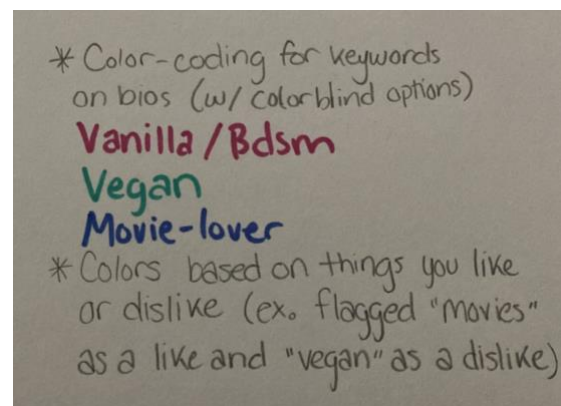 * Color-coding for keywords
on bios (w/ colorblind options)
Vanilla/Bdsm
Vegan
Movie-lover
* Colors based on things you like
or dislike (ex. flagged "movies"
as a like and "vegan" as a dislike)